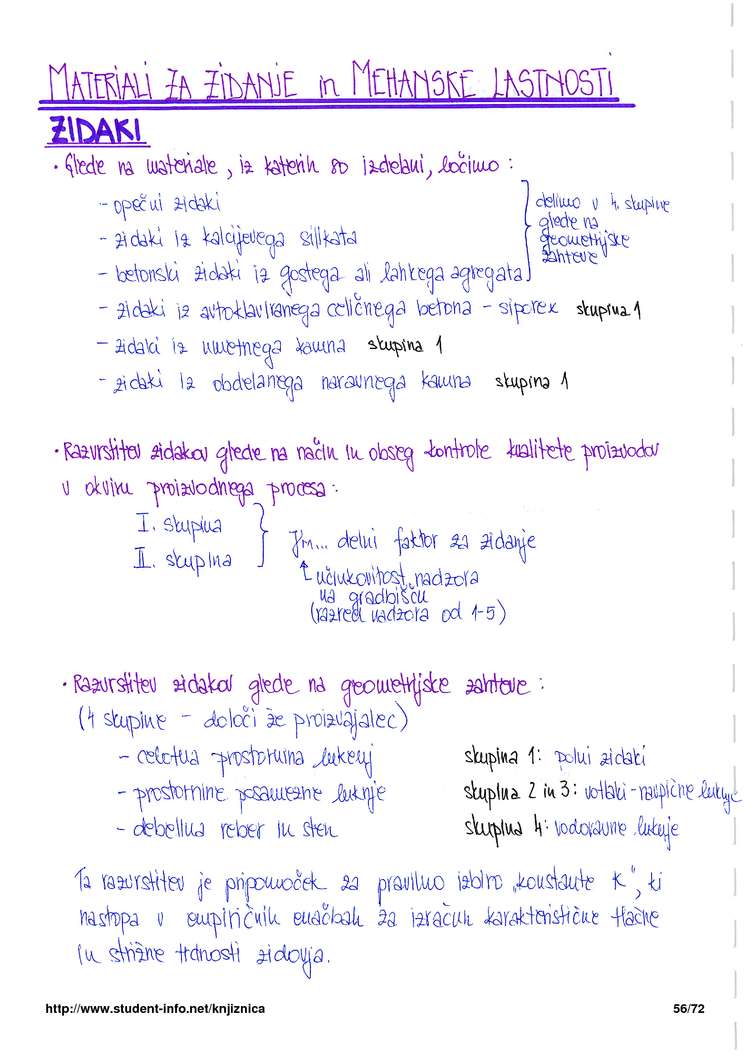 MATERIALI ZA ZIDANJE in MEHANSKE LASTNOSTI
ZIDAKI
· Glede na materiale, iz katerih so izdelani, ločimo :
- opečni zidaki
- zidaki iz kalcijevega silikata
- betonski zidaki iz gostega ali lahkega agregata
delimo v 4. skupine
glede na
geometrijske
zahteve
- zidaki iz avtoklaviranega celičnega betona - siporex skupina 1
- zidaki iz umetnega kamna skupina 1
- zidaki iz obdelanega naravnega kamna skupina 1
· Razvrstitev zidakov glede na način in obseg kontrole kvalitete proizvodov
v okviru proizvodnega procesa :
I. skupina
II. skupina
γM... delni faktor za zidanje
↑ učinkovitost nadzora
na gradbišču
(razred nadzora od 1-5)
· Razvrstitev zidakov glede na geometrijske zahteve :
(4 skupine - določi že proizvajalec)
- celotna prostornina lukenj
- prostornine posamezne luknje
- debelina reber in sten
skupina 1: polni zidaki
skupina 2 in 3: votlaki - navpične luknje
skupina 4: vodoravne luknje
Ta razvrstitev je pripomoček za pravilno izbiro „konstante K", ki
nastopa v empiričnih enačbah za izračun karakteristične tlačne
in strižne trdnosti zidovja.
http://www.student-info.net/knjiznica
56/72